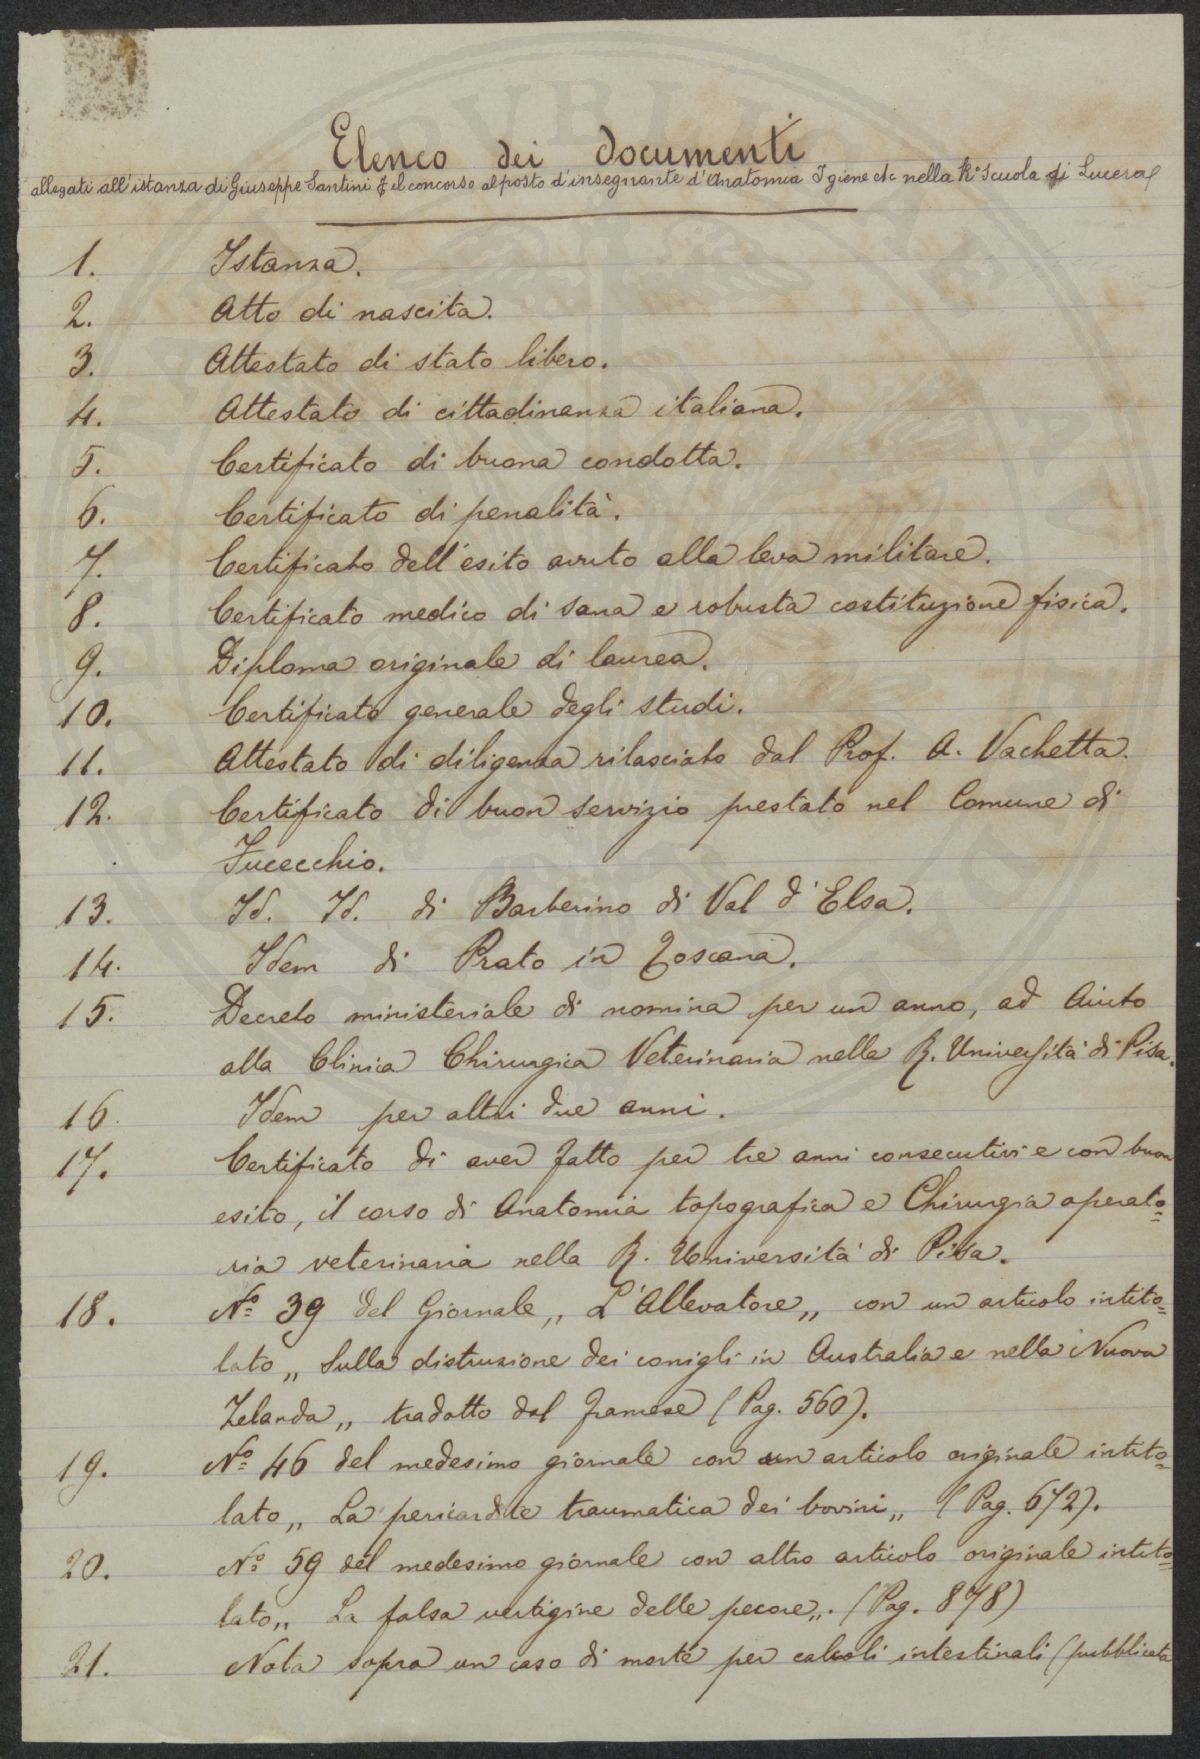 Elenco dei documenti
allegati all'istanza di Giuseppe Santini p il concorso al posto d'insegnante d'Anatomia Igiene etc nella Ra Scuola di Lucera
1. Istanza.
2. Atto di nascita.
3. Attestato di stato libero.
4. Attestato di cittadinanza italiana.
5. Certificato di buona condotta.
6. Certificato di penalità.
7. Certificato dell'esito avuto alla leva militare.
8. Certificato medico di sana e robusta costituzione fisica.
9. Diploma originale di laurea.
10. Certificato generale degli studi.
11. Attestato di diligenza rilasciato dal Prof. A. Vachetta.
12. Certificato di buon servizio prestato nel Comune di
Fucecchio.
13. Id. Id. di Barberino di Val d'Elsa.
14. Idem di Prato in Toscana.
15. Decreto ministeriale di nomina per un anno, ad Aiuto
alla Clinica Chirurgica Veterinaria nella R. Università di Pisa.
16. Idem per altri due anni.
17. Certificato di aver fatto per tre anni consecutivi e con buon
esito, il corso di Anatomia topografica e Chirurgia operato=
ria veterinaria nella R. Università di Pisa.
18. No 39 del Giornale „ L'Allevatore „ con un articolo intito=
lato „ Sulla distruzione dei conigli in Australia e nella Nuova
Zelanda „ tradotto dal francese (Pag. 560).
19. No 46 del medesimo giornale con un articolo originale intito=
lato „ La pericardite traumatica dei bovini „ (Pag. 672).
20. No 59 del medesimo giornale con altro articolo originale intito=
lato „ La falsa vertigine delle pecore „. (Pag. 878)
21. Nota sopra un caso di morte per calcoli intestinali (pubblicata